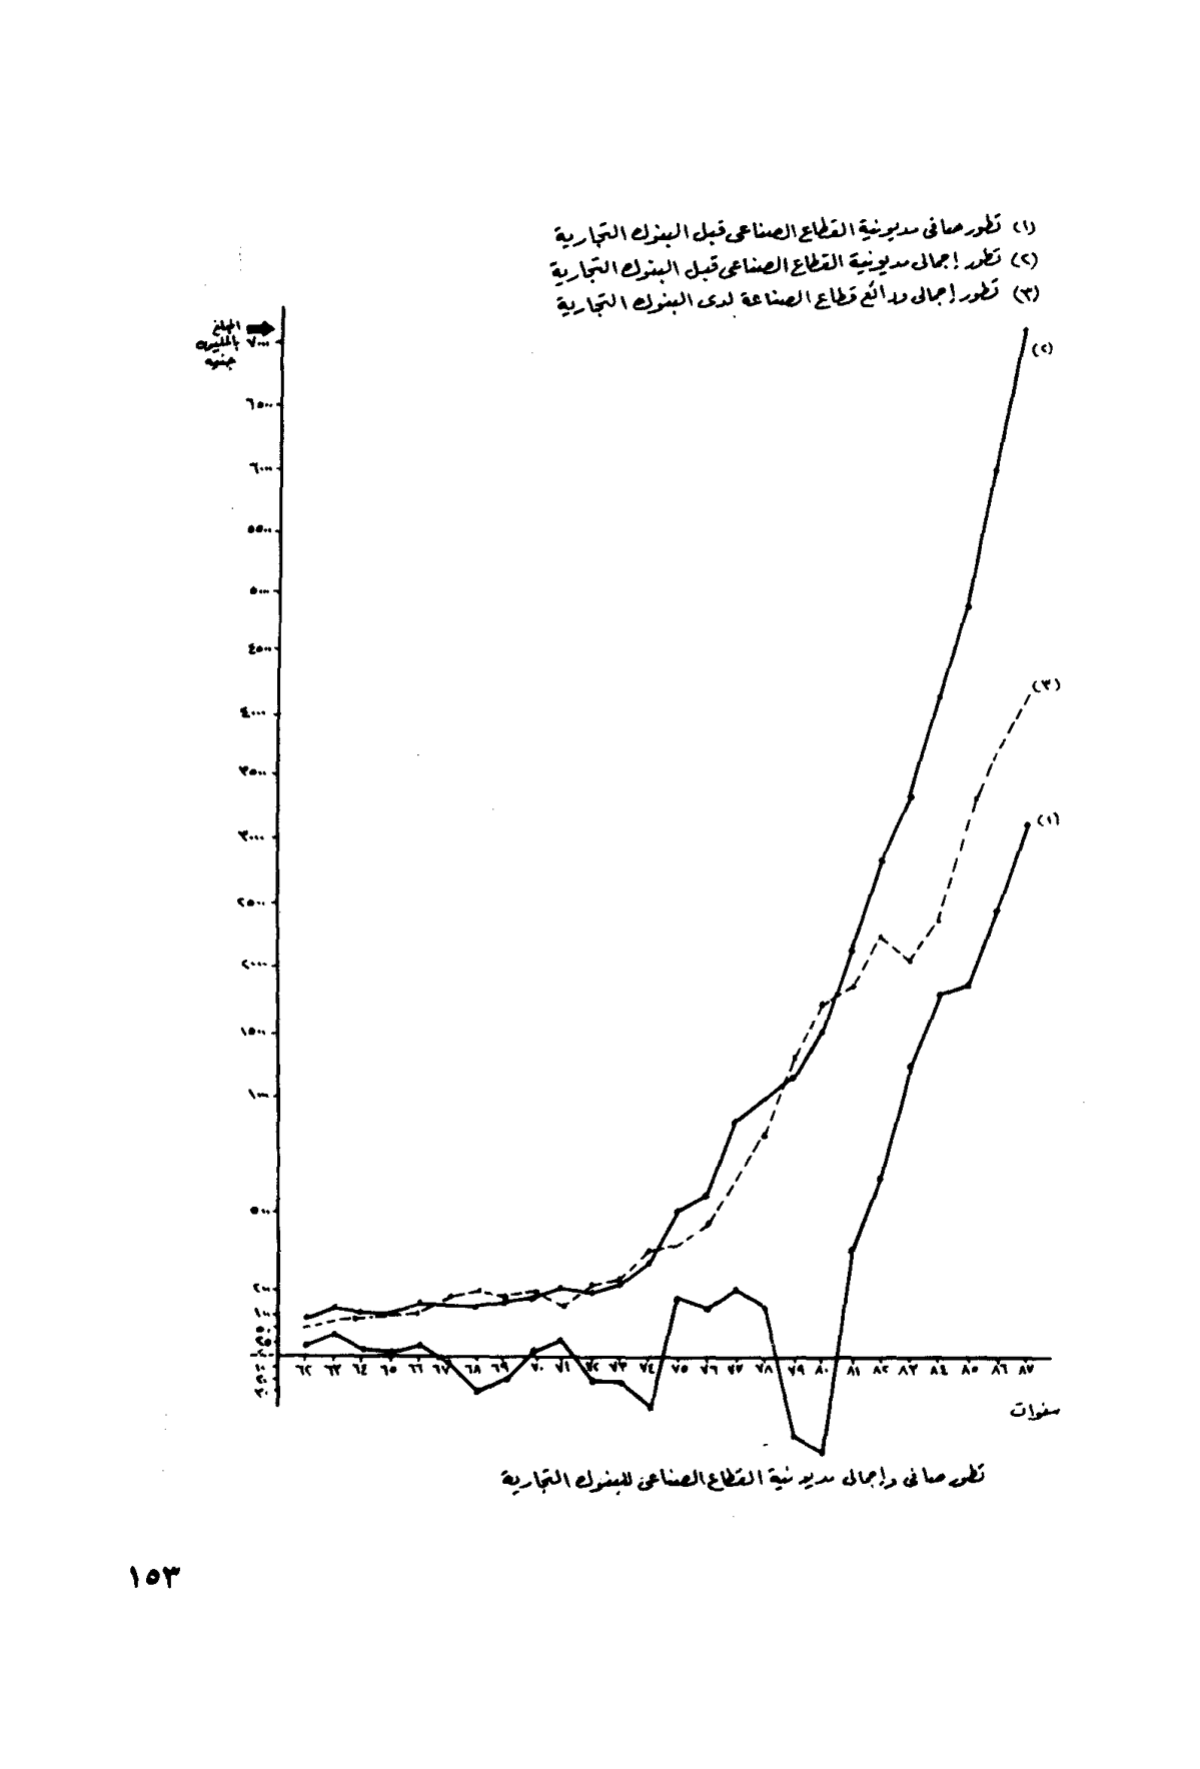 (١) تطور صافى مديونية القطاع الصناعى قبل البنوك التجارية
(٢) تطور إجمالى مديونية القطاع الصناعى قبل البنوك التجارية
(٣) تطور إجمالى ودائع قطاع الصناعة لدى البنوك التجارية
المبلغ
بالمليون
جنيه
٧٠٠٠
(٢)
٦٥٠٠
٦٠٠٠
٥٥٠٠
٥٠٠٠
٤٥٠٠
(٣)
٤٠٠٠
٣٥٠٠
٣٠٠٠
(١)
٢٥٠٠
٢٠٠٠
١٥٠٠
١٠٠٠
٥٠٠
٦٢ ٦٣ ٦٤ ٦٥ ٦٦ ٦٧ ٦٨ ٦٩ ٧٠ ٧١ ٧٢ ٧٣ ٧٤ ٧٥ ٧٦ ٧٧ ٧٨ ٧٩ ٨٠ ٨١ ٨٢ ٨٣ ٨٤ ٨٥ ٨٦ ٨٧
سنوات
تطور صافى وإجمالى مديونية القطاع الصناعى للبنوك التجارية
١٥٣